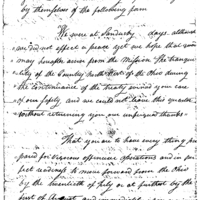 by themselves of the following form
We were at Sandusky days, although
we did not effect a peace yet we hope that good
may hereafter arise from the Mission. The tranqui-
lity of the Country North West of the Ohio during
the continuance of the treaty evinced your care
of our safety, and we could not leave this quarter
without returning you our unfeigned thanks
That you are to have every thing pre
pared for vigorous offensive operations and in per
fect readiness to move forward from the Ohio
by the twentieth of July or at furthest by the
first of August and